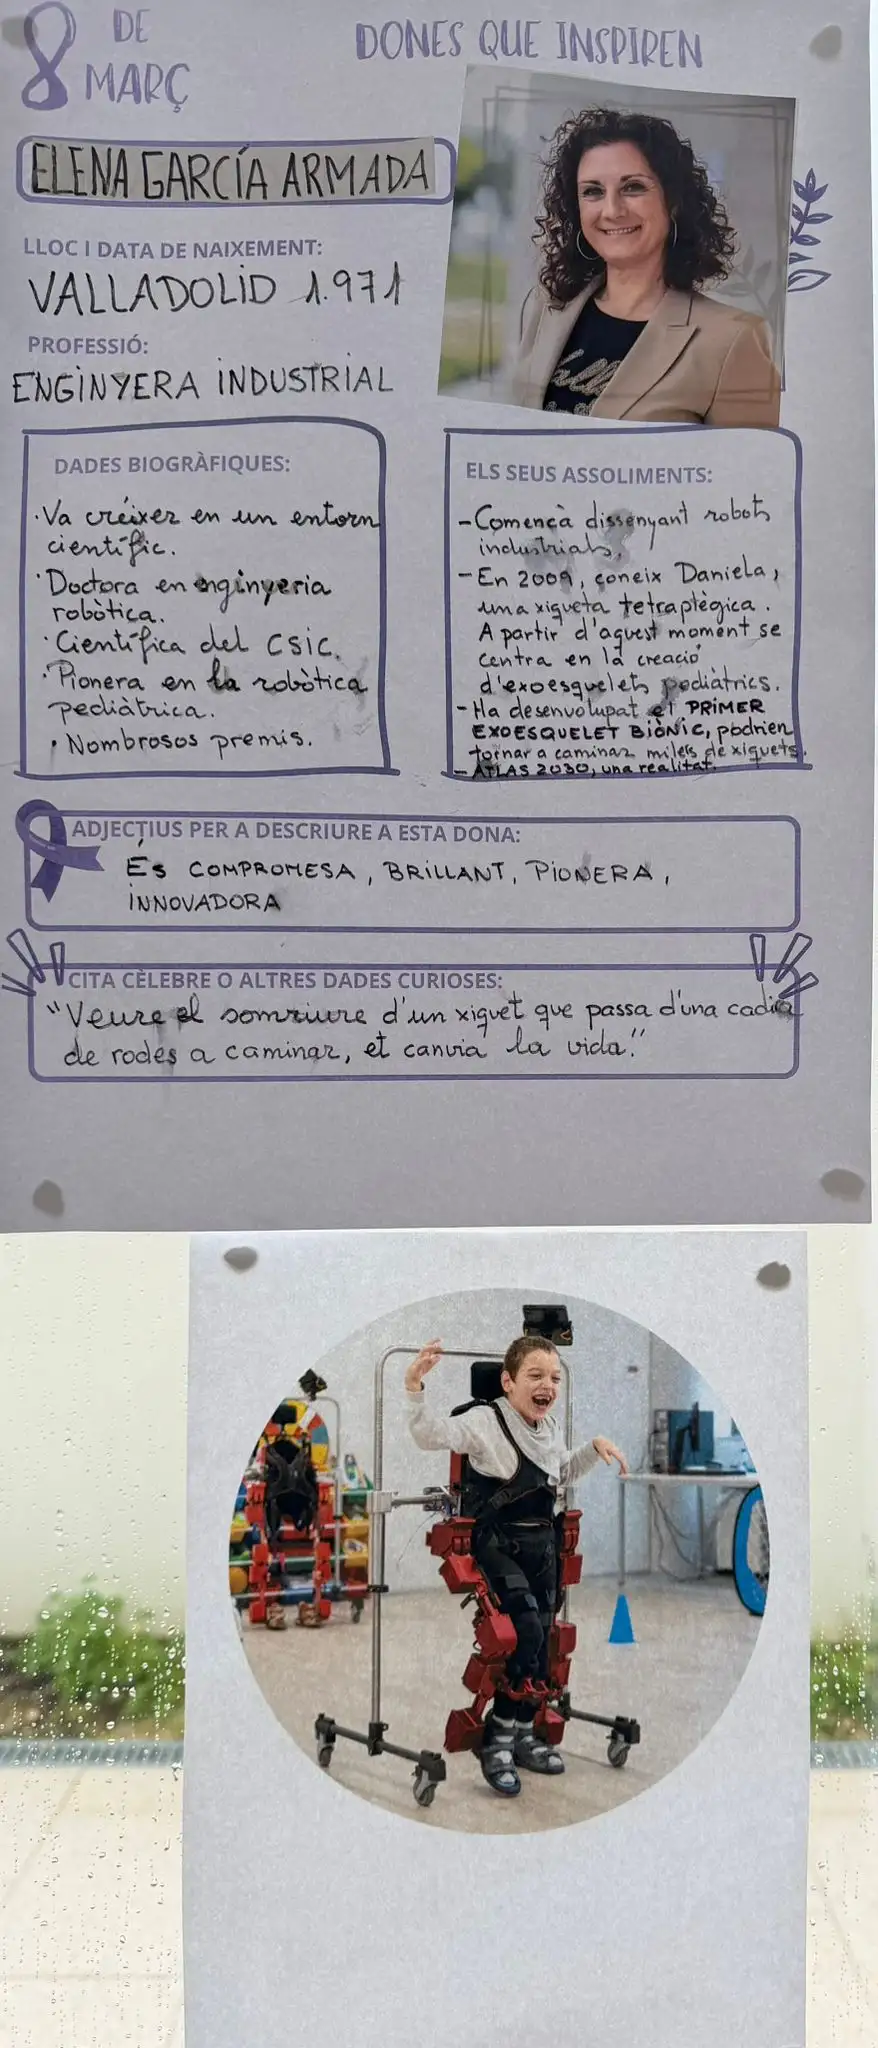 8 DE MARÇ
DONES QUE INSPIREN
ELENA GARCÍA ARMADA
LLOC I DATA DE NAIXEMENT:
VALLADOLID 1.971
PROFESSIÓ:
ENGINYERA INDUSTRIAL
DADES BIOGRÀFIQUES:
· Va créixer en un entorn
científic.
· Doctora en enginyeria
robòtica.
· Científica del CSIC.
· Pionera en la robòtica
pediàtrica.
· Nombrosos premis.
ELS SEUS ASSOLIMENTS:
- Comencà dissenyant robots
industrials.
- En 2009, coneix Daniela,
una xiqueta tetraplègica.
A partir d'aquest moment se
centra en la creació
d'exoesquelets pediàtrics.
- Ha desenvolupat el PRIMER
EXOESQUELET BIÒNIC, podrien
tornar a caminar milers de xiquets.
- ATLAS 2030, una realitat.
ADJECTIUS PER A DESCRIURE A ESTA DONA:
És COMPROMESA, BRILLANT, PIONERA,
INNOVADORA
CITA CÈLEBRE O ALTRES DADES CURIOSES:
"Veure el somriure d'un xiquet que passa d'una cadira
de rodes a caminar, et canvia la vida."